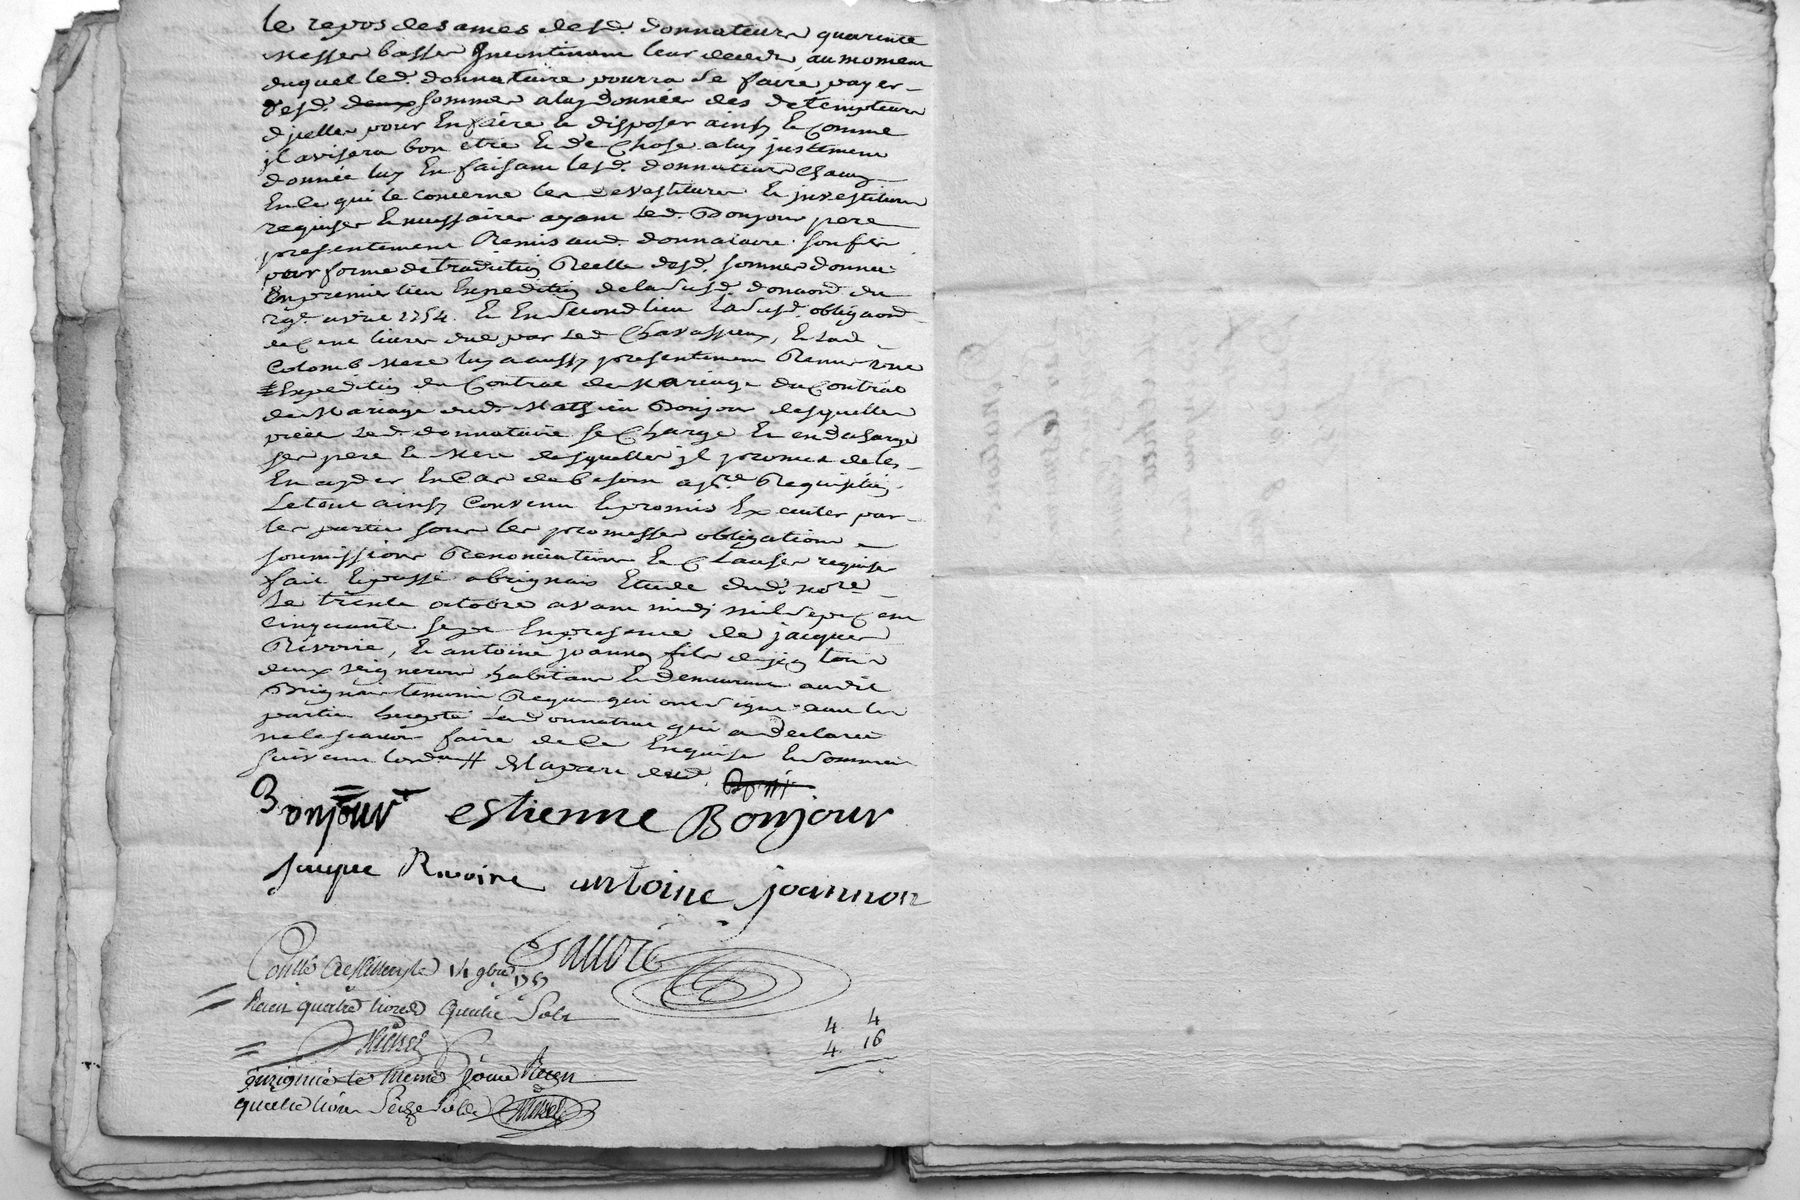 le repos des ames desd. donnateurs quarente
Messes basses Incontinant leur decedz, au moment
duquel led. donnataire pourra se faire payer
desd. deux sommes a luy données des detempteurs
d'jcelles pour En faire Et disposer ainsy Et Comme
jl avisera bon etre Et de Chose a luy justement
donnée luy En faisant lesd. donnateurs Chacun
En ce qui le concerne les devestitures Et jnvestitures
requises Et necessaires ayant led. Bonjour pere
presentement Remis aud. donnataire son fils
pour forme de tradition Reelle desd. sommes données
En premier lieu Expedition de la susd. donaon du
avril 1754. Et En second lieu la susd. obligaon
de Cent livres due par led. Chavassieux, Et lad.
Colomb Mere luy a aussy presentement Remis une
Expedition du Contrat de Mariage du Contrat
de Mariage dud. Mathieu Bonjour desquelles
pieces led. donnataire se Charge Et en decharge
ses pere Et Mere desquelles jl promet de les
En ayder En Cas de besoin a pre. Requisition
Le tout ainsy Convenu Et promis Executer par
les parties sous les promesses obligations
soumissions Renonciations Et Clauses requises
fait Et passé a brignais Etude dud. nore.
Le trente octobre avant midy mil sept cent
cinquante sept En presence de jacques
Rivoire, Et antoine joannon fils de jean tous
deux vignerons habitans Et demeurans audit
Brignais temoins Requis qui ont signé avec les
parties Excepté la donnatrice qui a declaré
ne le scavoir faire de ce Enquise Et sommée
suivant lord. //
Bonjour estienne Bonjour
jacque Rivoire antoine joannon
Sauvoré
Conllé 14 9bre 1757
Receu quatre livres quatre sols
4 4
4 16
insinué le meme jour Receu
quatre livres seize sols